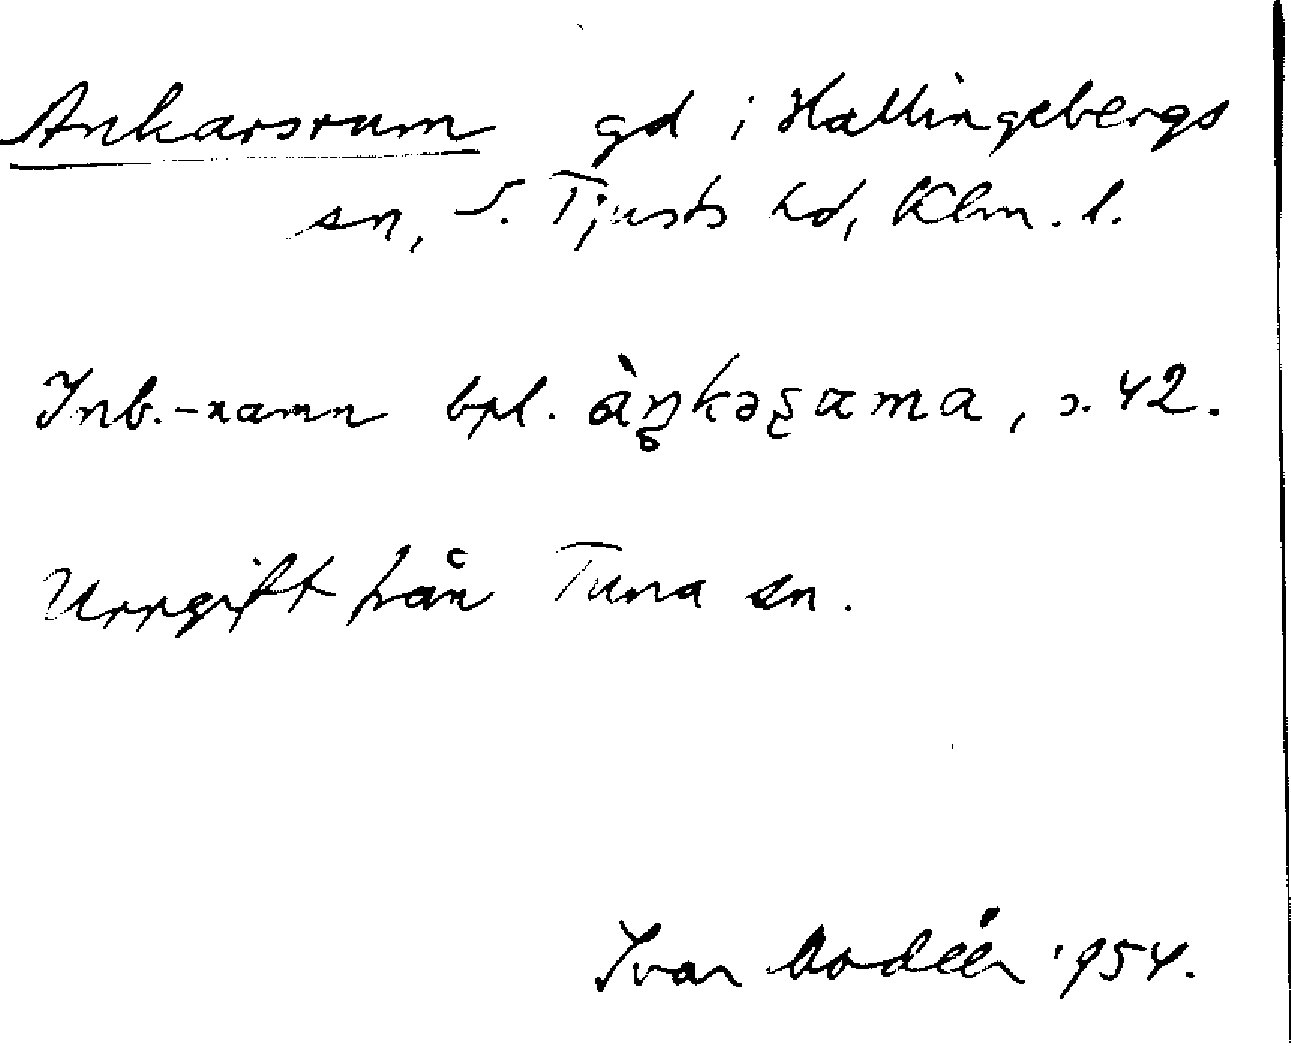 Ankarsrum gd i Hallingebergs
sn, S. Tjusts hd, Klm. l.
Inb.-namn bpl. , s. 42.
Uppgift från Tuna sn.
Ivar Modéer 1954.